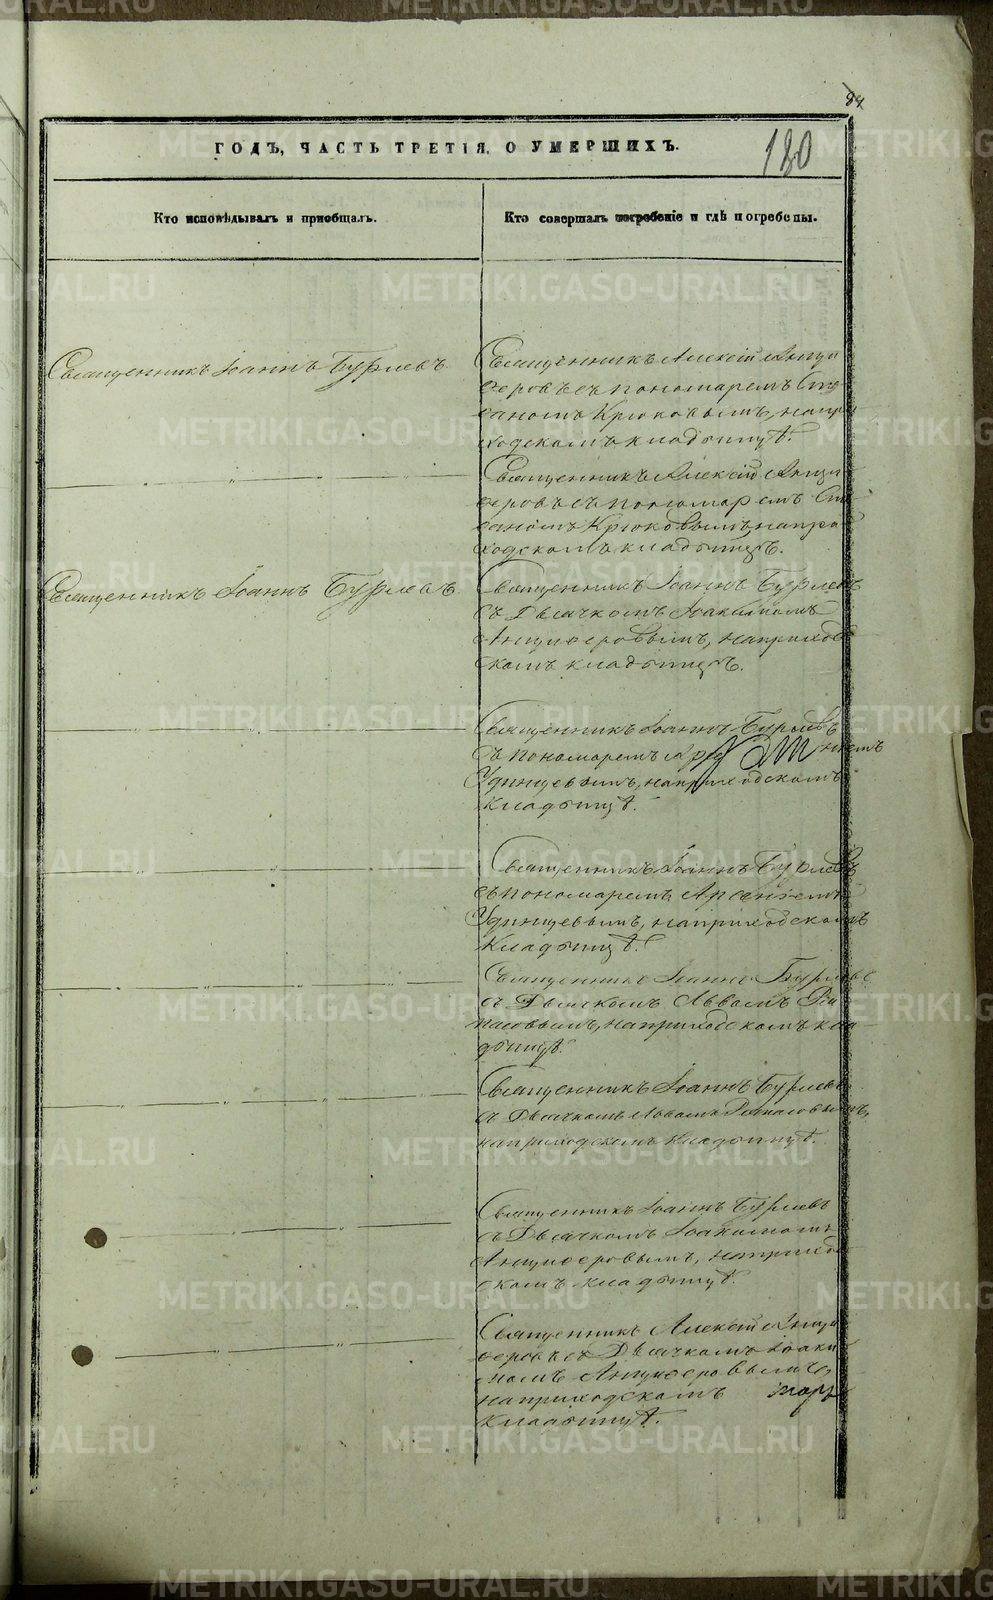 84
180
ГОДЪ, ЧАСТЬ ТРЕТІЯ, О УМЕРШИХЪ.
Кто исповѣдывалъ и пріобщалъ.
Кто совершалъ погребеніе и гдѣ погребены.
Священникъ Іоаннъ Бурлевъ.
Священникъ Алексій Анци
феровъ съ пономаремъ Сте
фаномъ Крюковымъ, на при
ходскомъ кладбищѣ.
Священникъ Алексій Анци
феровъ съ пономаремъ Сте
фаномъ Крюковымъ, на при
ходскомъ кладбищѣ.
Священникъ Іоаннъ Бурлевъ.
Священникъ Іоаннъ Бурлевъ
съ Дьячкомъ Іоакимомъ
Анциферовымъ, на приход
скомъ кладбищѣ.
Священникъ Іоаннъ Бурлевъ
съ пономаремъ
Удинцевымъ, на приходскомъ
кладбищѣ.
Священникъ Іоаннъ Бурлевъ
съ пономаремъ Арсеніемъ
Удинцевымъ, на приходскомъ
кладбищѣ.
Священникъ Іоаннъ Бурлевъ
съ Дьячкомъ Львомъ
на приходскомъ кла
дбищѣ.
Священникъ Іоаннъ Бурлевъ
съ Дьячкомъ Львомъ
на приходскомъ кладбищѣ.
Священникъ Іоаннъ Бурлевъ
съ Дьячкомъ Іоакимомъ
Анциферовымъ, на приход
скомъ кладбищѣ.
Священникъ Алексій Анци
феровъ съ Дьячкомъ Іоаки
момъ Анциферовымъ,
на приходскомъ
кладбищѣ.
METRIKI.GASO-URAL.RU